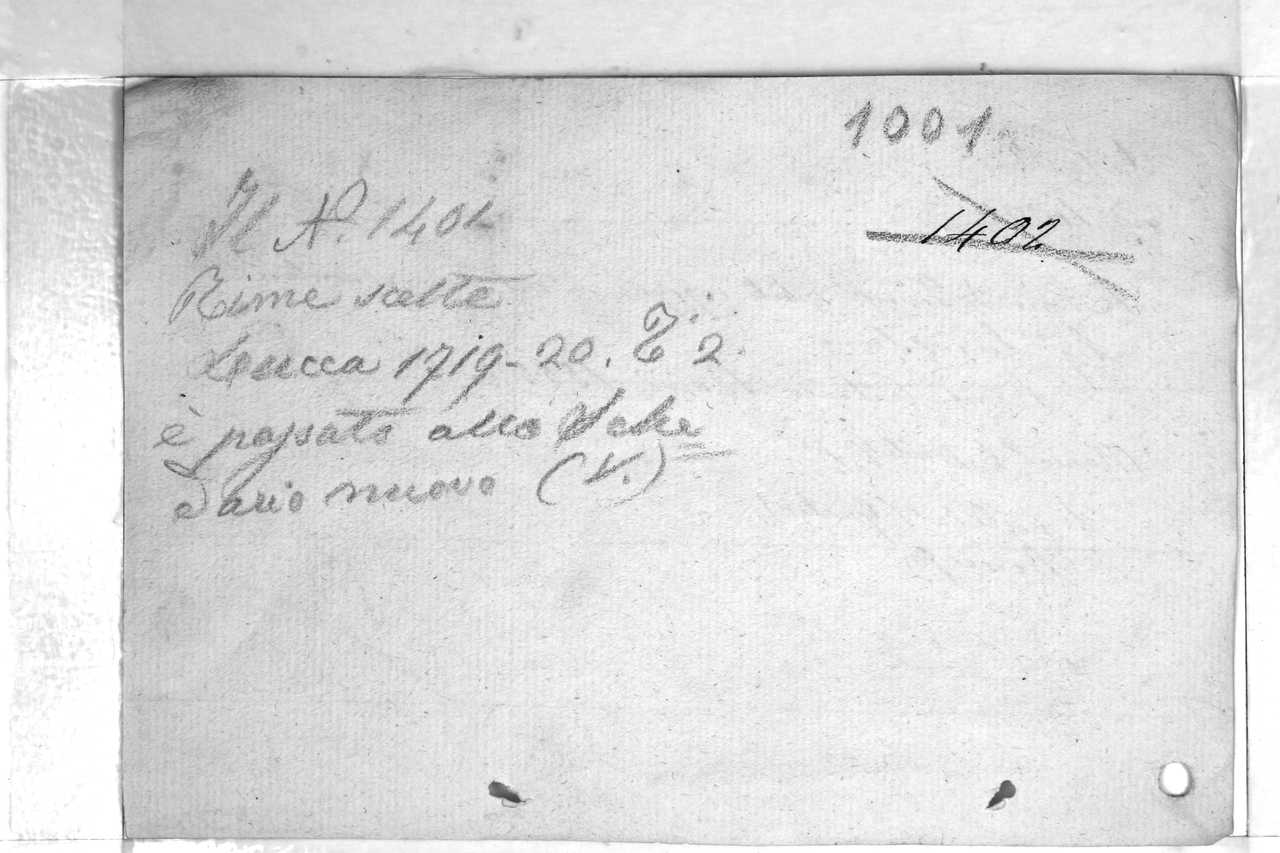 1001
1402
Il N. 1402
Rime scelte
Lucca 1719-20. T. 2.
è passato allo Sche=
dario nuovo (V.)